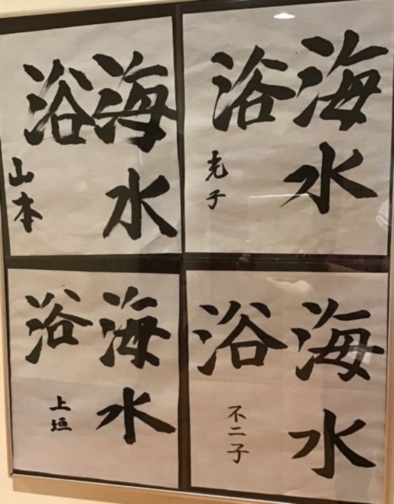 海水
浴
山本
海水
浴
光子
海水
浴
上垣
海水
浴
不二子